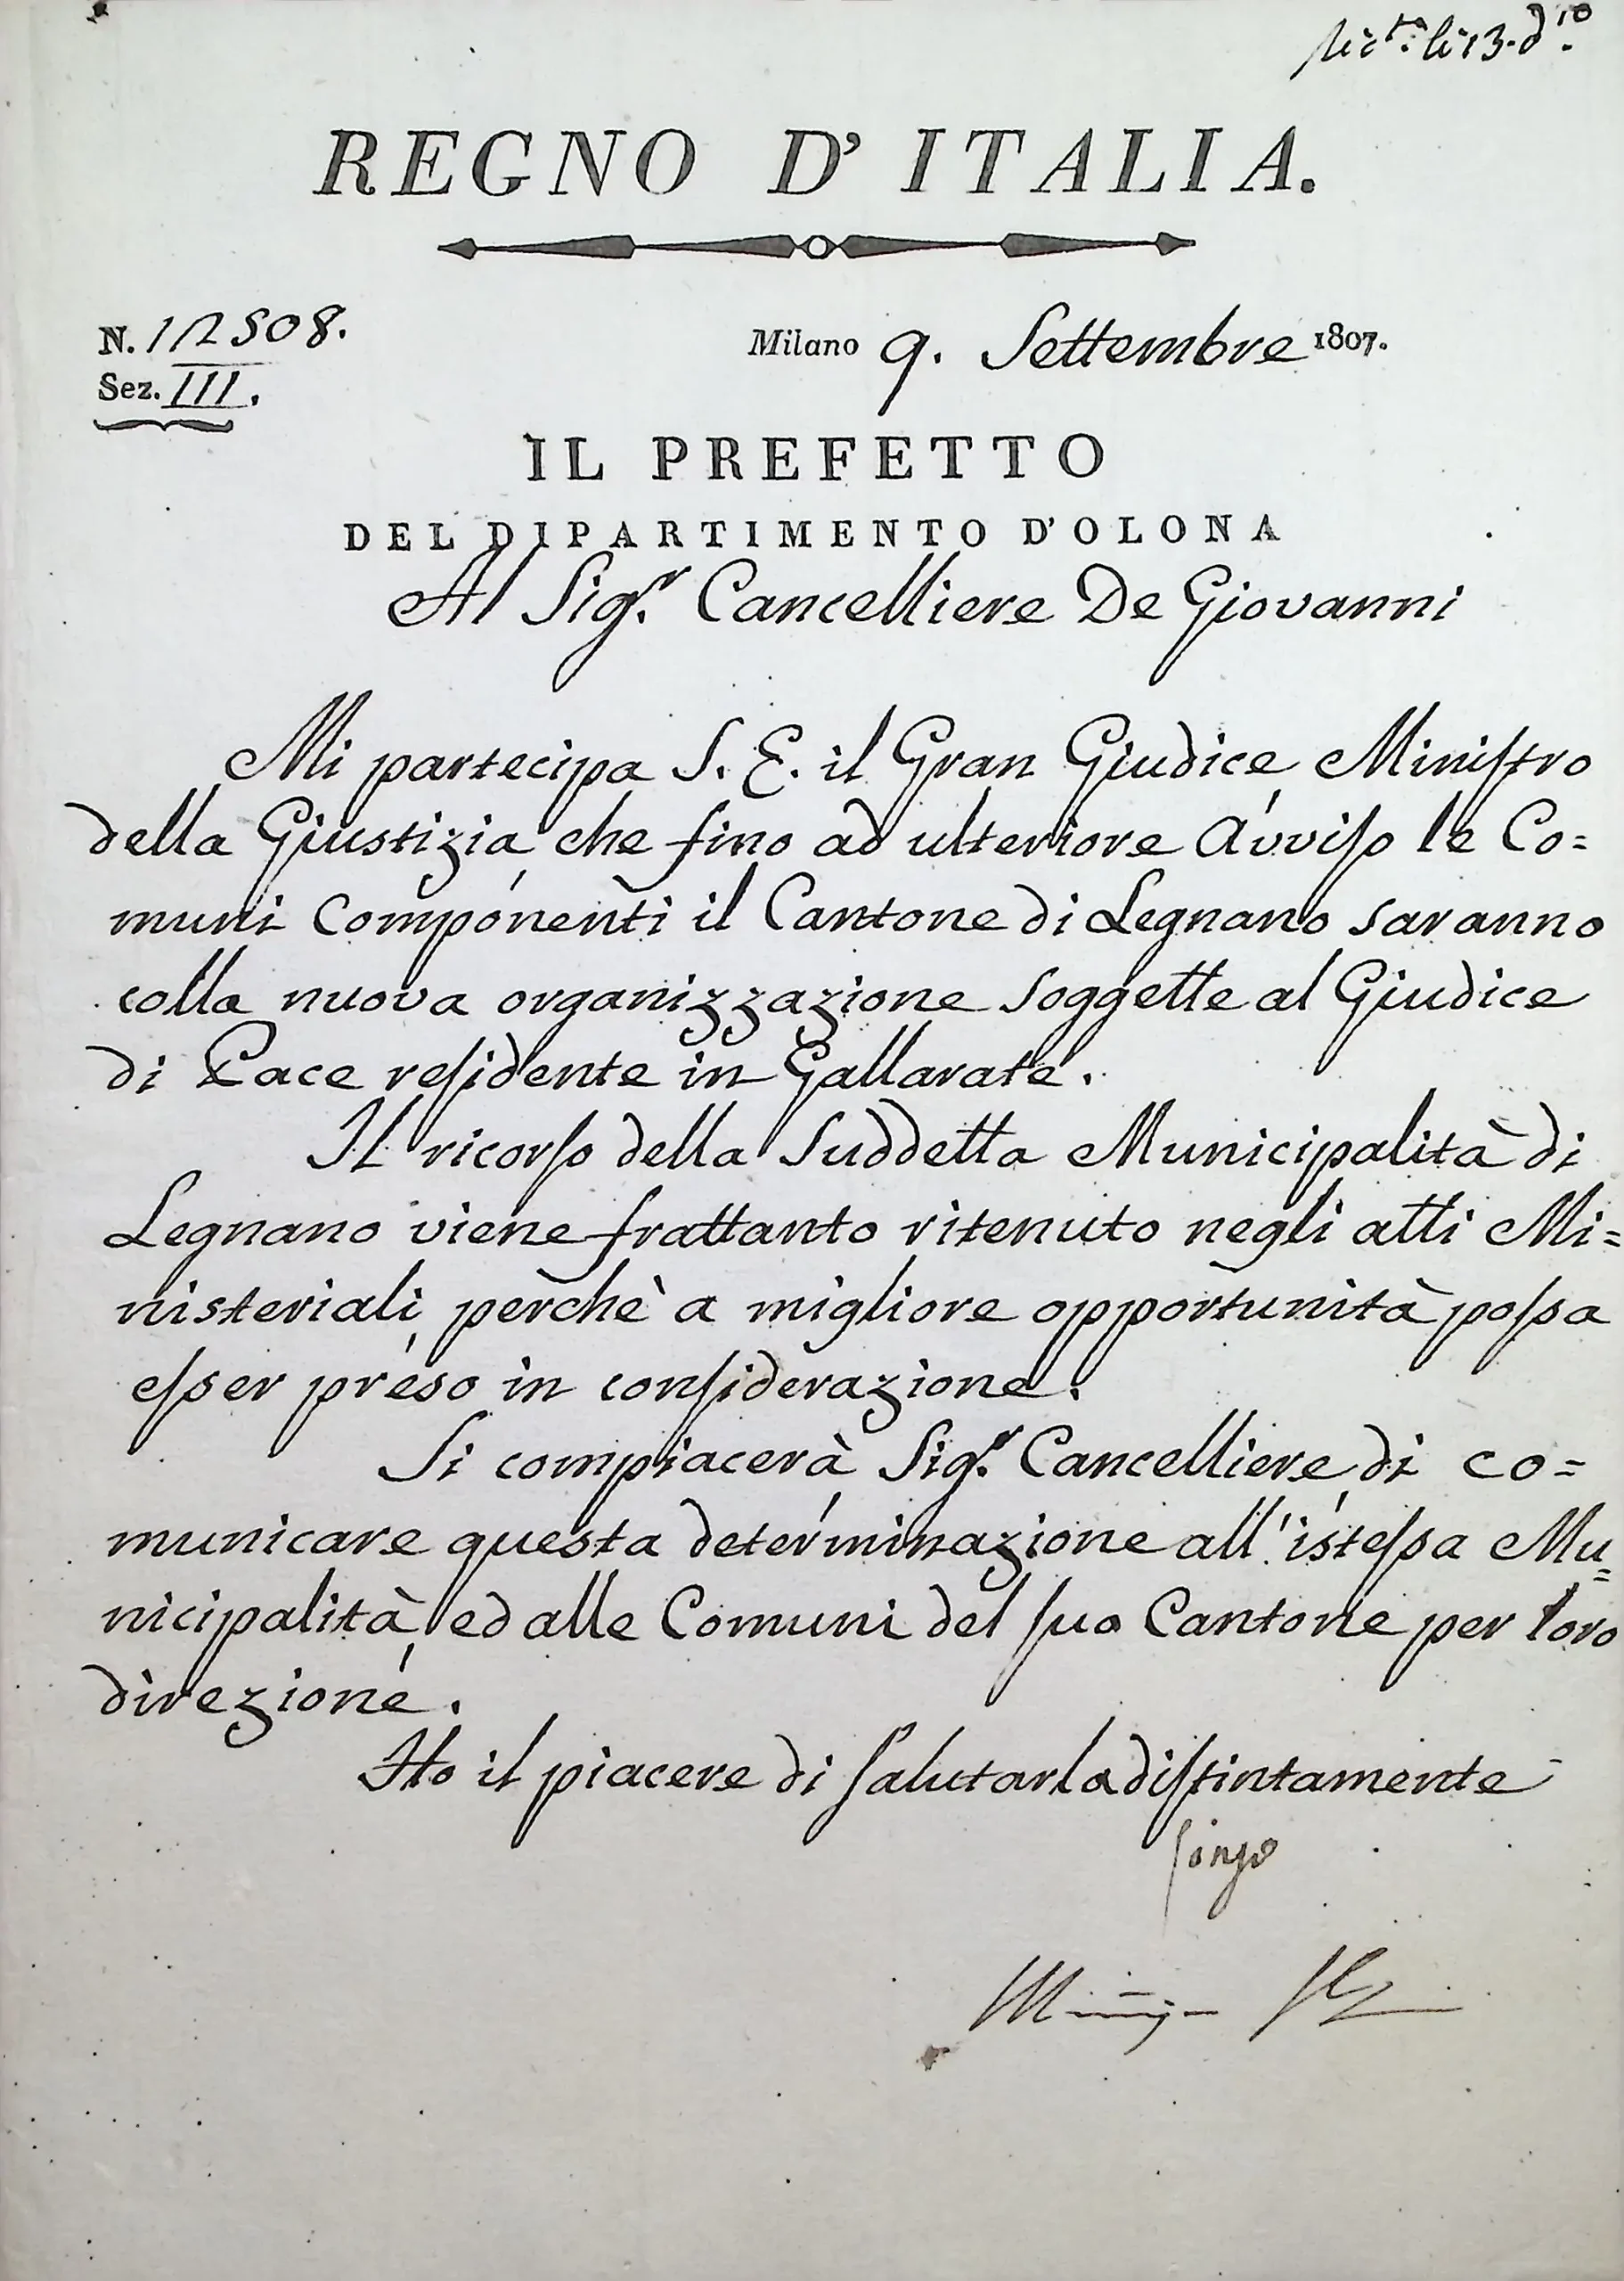 li 13. d.to
REGNO D'ITALIA.
N. 12508.
Milano 9. Settembre 1807.
Sez. III.
IL PREFETTO
DEL DIPARTIMENTO D'OLONA
Al Sig.r Cancelliere De Giovanni
Mi partecipa S. E. il Gran Giudice, Ministro
della Giustizia, che fino ad ulteriore Avviso le Co=
muni componenti il Cantone di Legnano saranno
colla nuova organizzazione soggette al Giudice
di Pace residente in Gallarate.
Il ricorso della Suddetta Municipalità di
Legnano viene frattanto ritenuto negli atti Mi=
nisteriali, perchè a migliore opportunità possa
esser preso in considerazione.
Si compiacerà, Sig.r Cancelliere, di co=
municare questa determinazione all'istessa Mu=
nicipalità, ed alle Comuni del suo Cantone per loro
direzione.
Ho il piacere di salutarla distintamente